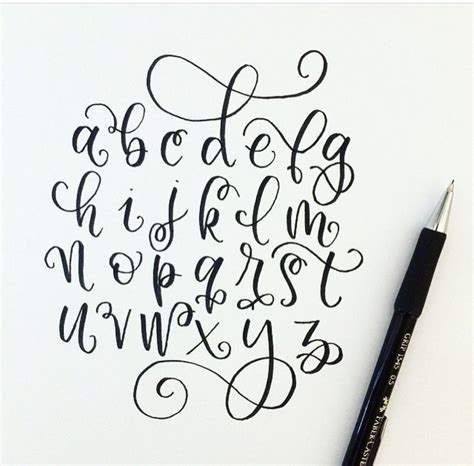 abcdefg
hijklm
nopqrst
uvwxyz
GRIP 1345 05
FABER-CASTE